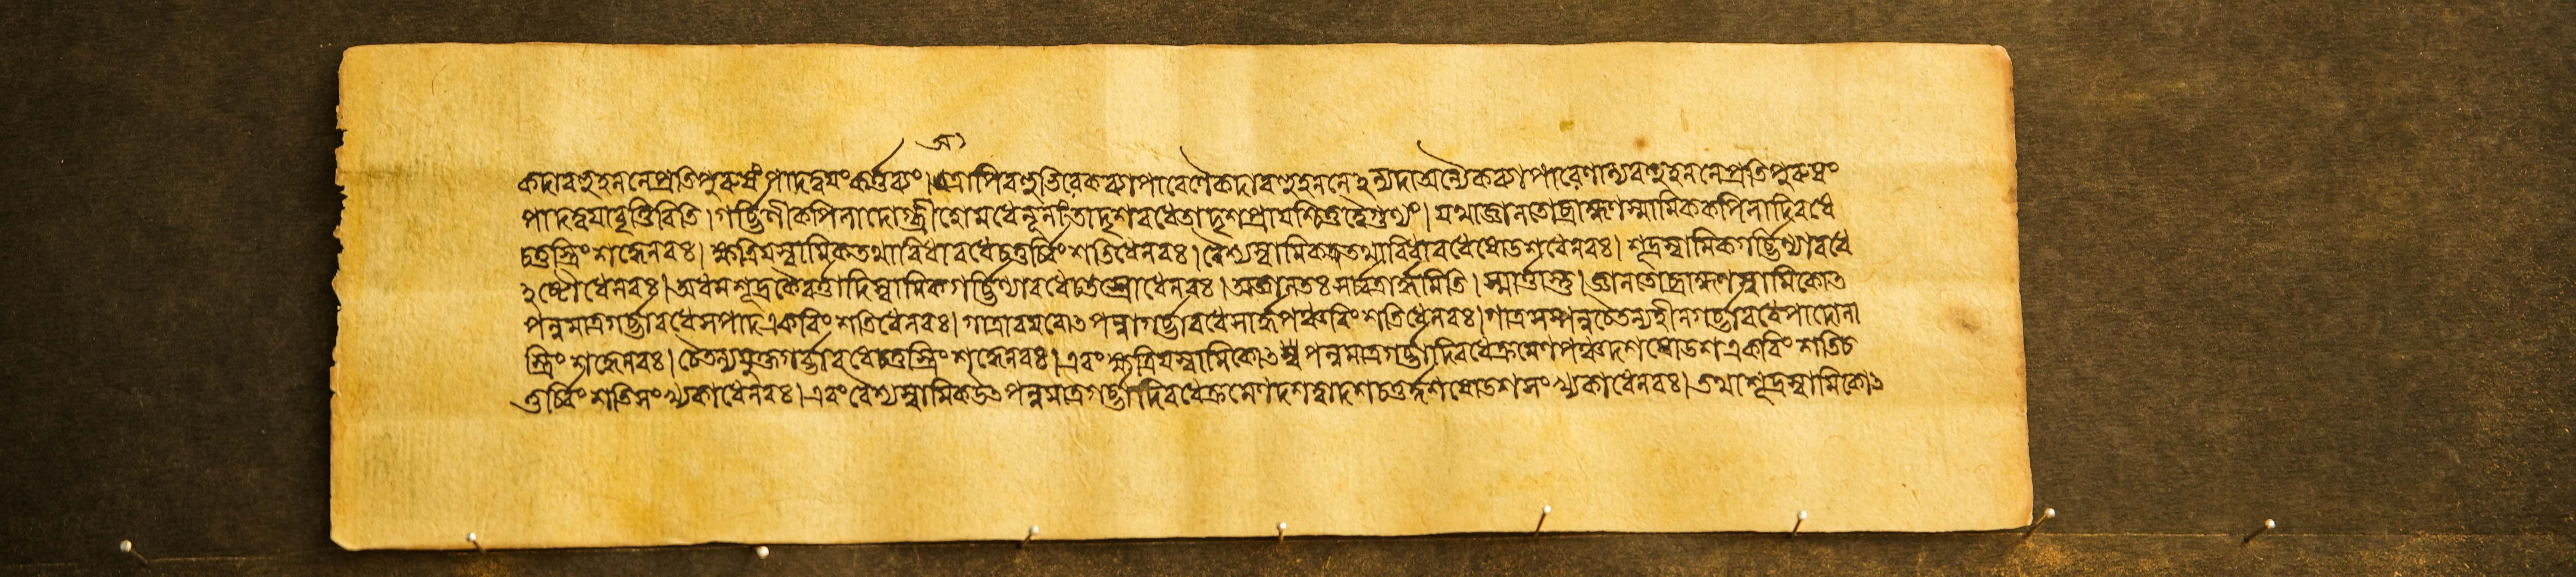 কদাবহুহননেপ্রতিপুরুষং পাদদ্বয়ংকর্ত্তব্যং।
পাদদ্বয়াবৃত্তিরিতি। গর্ব্ভিণীকপিলাদোগ্ধ্রীহোমধেনূনাং তাদৃশবধে প্রায়শ্চিত্তদ্বৈগুণ্যং। ব্রাহ্মণস্বামিককপিলাদিবধে
চতুস্ত্রিংশদ্ধেনবঃ। ক্ষত্রিয়স্বামিকতথাবিধাবধেচতুর্ব্বিংশতিধেনবঃ। বৈশ্যস্বামিকতথাবিধাবধেষোডশধেনবঃ। শূদ্রস্বামিকগর্ব্ভিণ্যাবধে
ঽষ্টৌধেনবঃ। অধমশূদ্রকৈবর্ত্তাদিস্বামিকগর্ব্ভিণ্যাবধেচতস্রোধেনবঃ। অজ্ঞানতঃসর্ব্বত্রার্দ্ধমিতি। স্মার্ত্তাস্তু। জ্ঞানতোব্রাহ্মণস্বামিকোৎ
পন্নমাত্রগর্ব্ভাবধেসপাদএকবিংশতিধেনবঃ। পন্নাগর্ব্ভাবধেসার্দ্ধপঞ্চবিংশতিধেনবঃ। গাত্রসম্পন্নচৈতন্যহীনগর্ব্ভাবধেপাদোনা
স্ত্রিংশদ্ধেনবঃ। চৈতন্যযুক্তগর্ব্ভাবধেচতুস্ত্রিংশদ্ধেনবঃ। এবং ক্ষত্রিয়স্বামিকোৎপন্নমাত্রগর্ব্ভাদিবধেক্রমেণপঞ্চদশষোডশএকবিংশতিচ
তুর্ব্বিংশতিসংখ্যকাধেনবঃ। এবং বৈশ্যস্বামিকউৎপন্নমাত্রগর্ব্ভাদিবধেক্রমেণদশদ্বাদশচতুর্দ্দশষোডশসংখ্যকাধেনবঃ। তথাশূদ্রস্বামিকোৎ